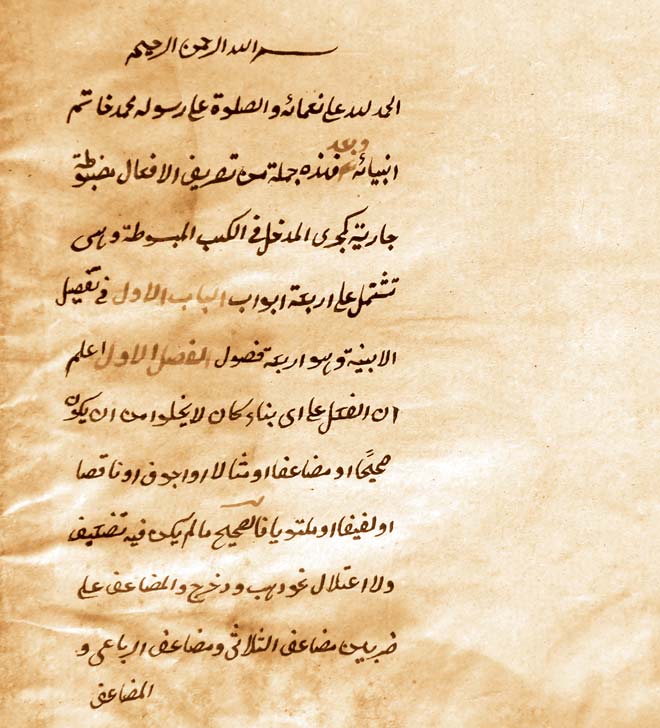 بسم الله الرحمن الرحيم
الحمد لله على نعمائه والصلوة على رسوله محمد خاتم
انبيائه وبعد فهذه جملة من تصريف الافعال مضبوطة
جارية كمجرى المدخل فى الكتب المبسوطة وهى
تشتمل على اربعة ابواب الباب الاول فى تفصيل
الابنية وهو اربعة فصول الفصل الاول اعلم
ان الفعل على اى بناء كان لا يخلوا من ان يكون
صحيحا او مضاعفا او مثالا او اجوف او ناقصا
او لفيفا او ملتويا فالصحيح ما لم يكن فيه تضعيف
ولا اعتلال نحو ذهب ودحرج والمضاعف على
ضربين مضاعف الثلاثى ومضاعف الرباعى و
المضاعف